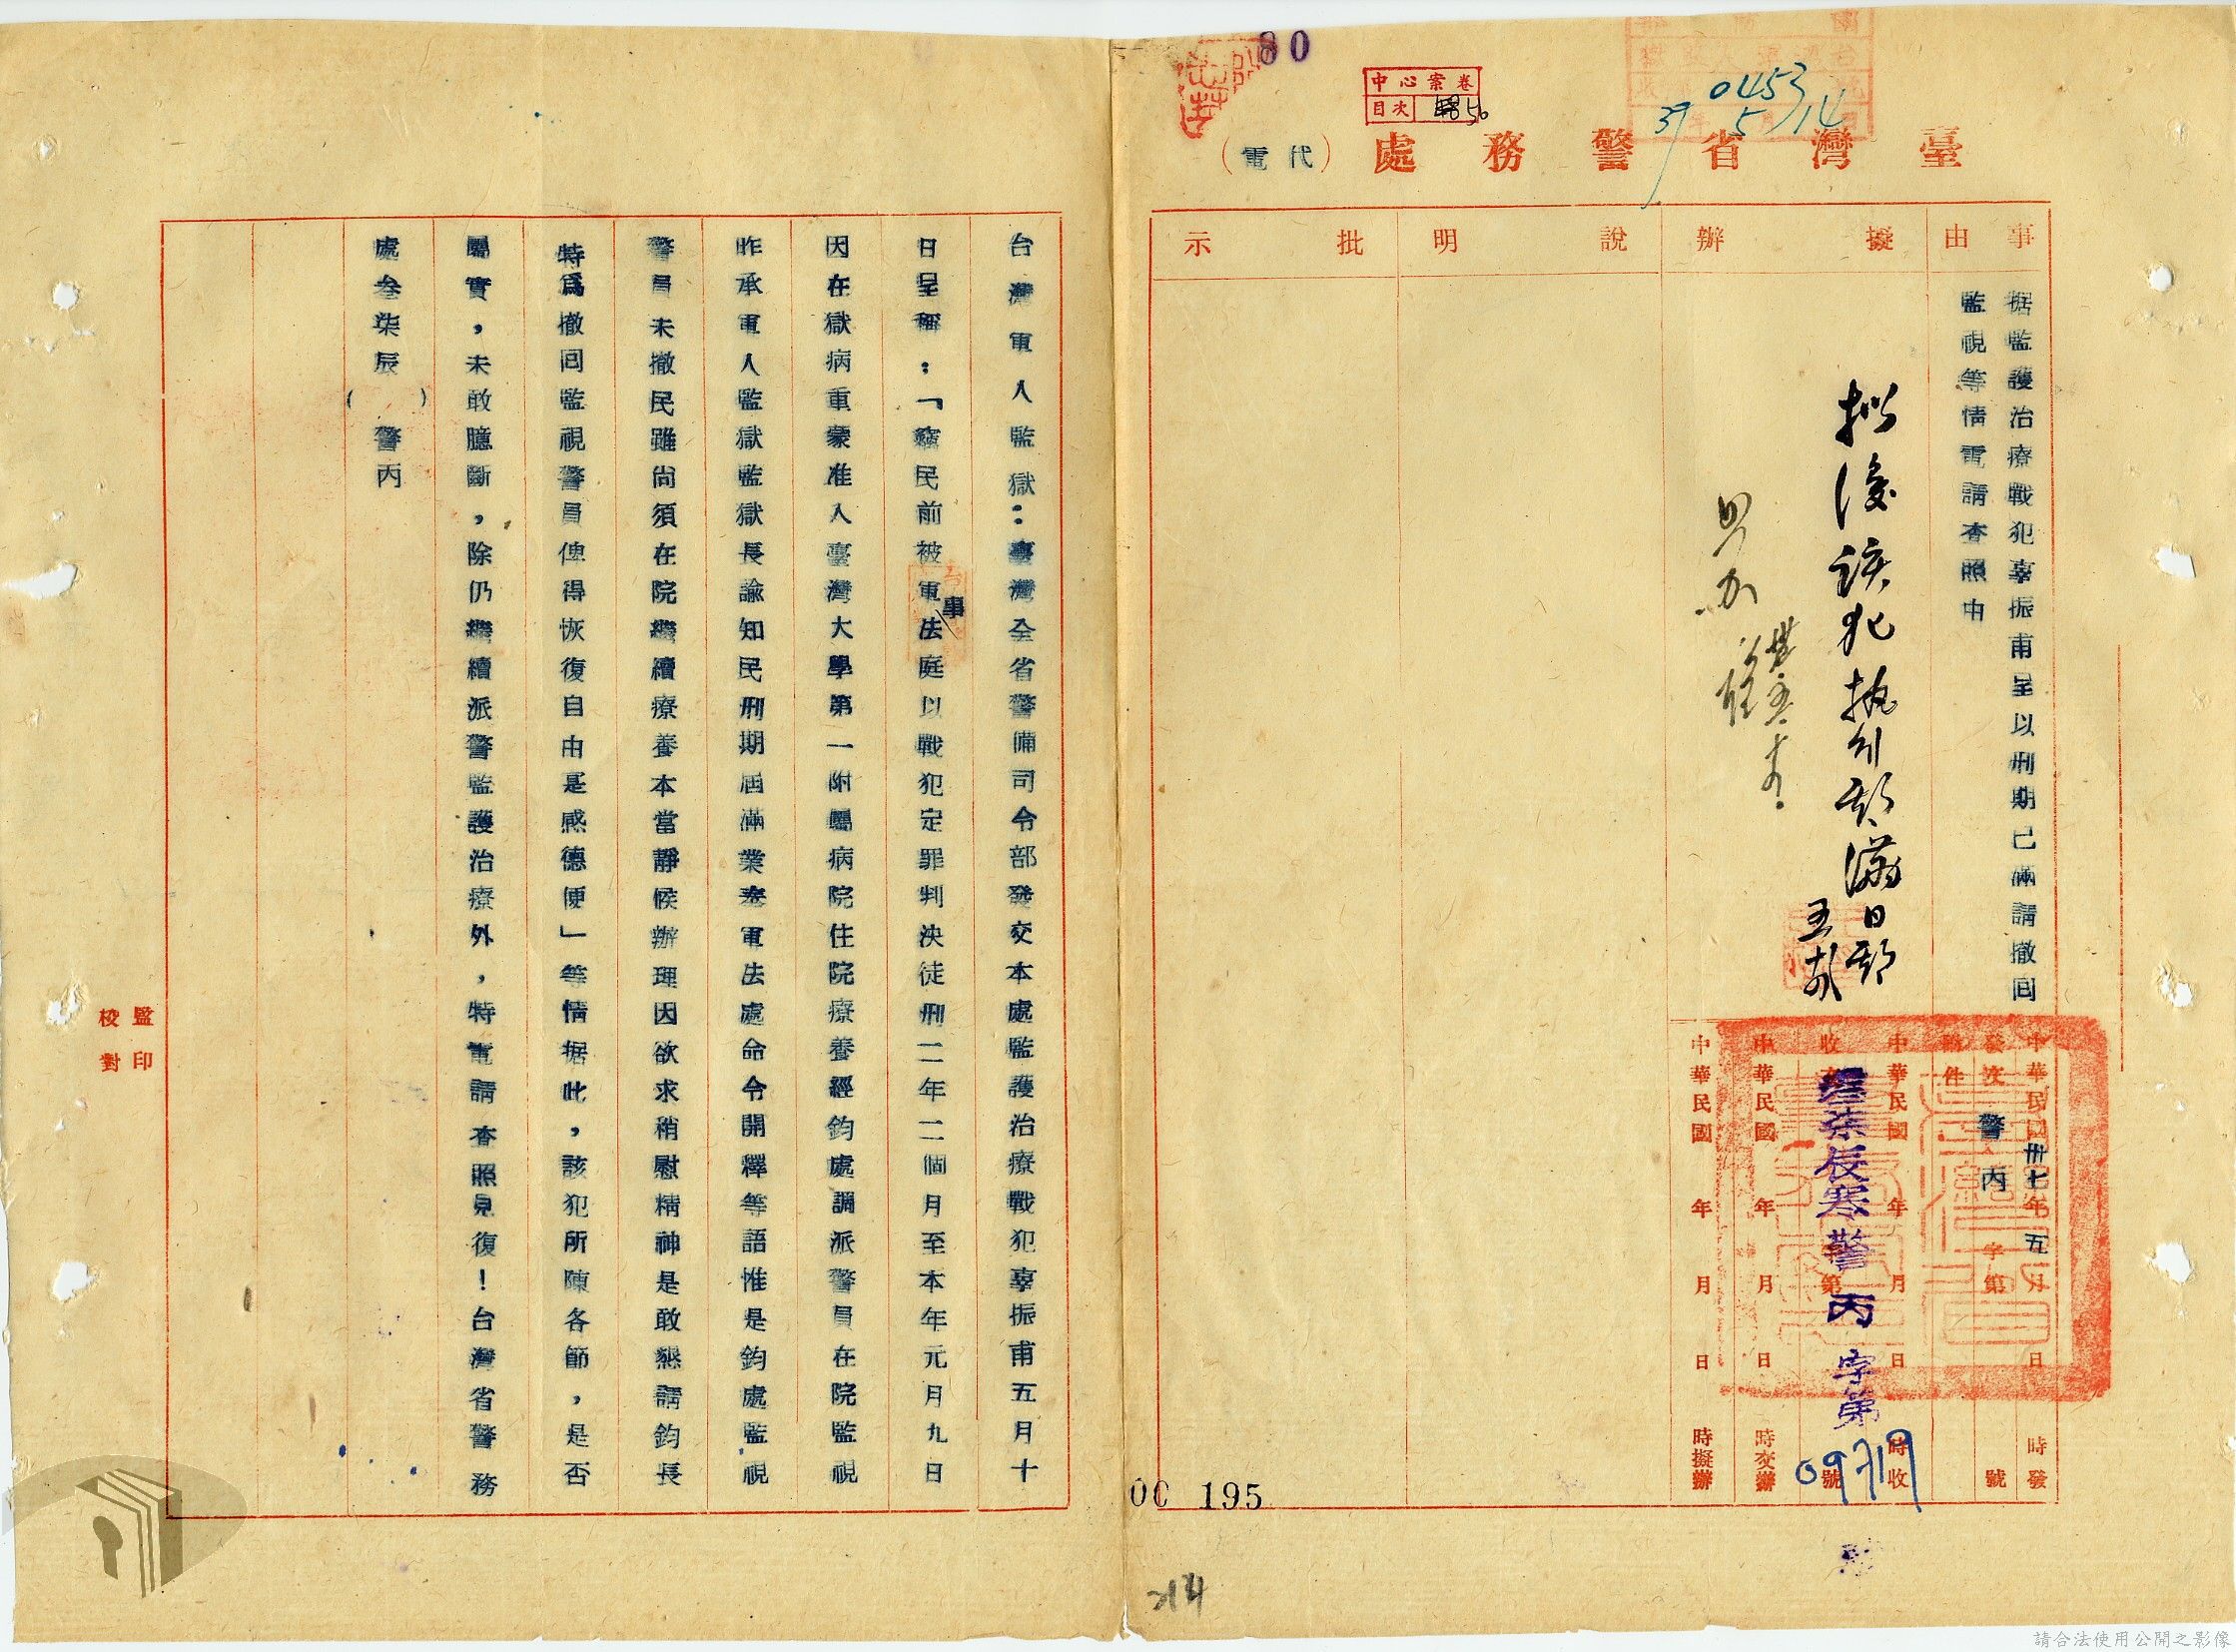 80
中心案卷
目次 50
0453
37 5/14
臺灣省警務處（代電）
事由
擬辦
說明
批示
据監護治療戰犯辜振甫呈以刑期已滿請撤回
監視等情電請查照由
拟復該犯執行期滿日期
五、十八
照办
中華民國卅七年五月 日 時發
發次 警丙字第 號
附件
中華民國 年 月 日 時收
收文 字第 號
叁柒辰寒警丙字第09719號
中華民國 年 月 日 時交辦
中華民國 年 月 日 時擬辦
台灣軍人監獄：臺灣全省警備司令部發交本處監護治療戰犯辜振甫五月十
日呈稱：「竊民前被軍事法庭以戰犯定罪判決徒刑二年二個月至本年元月九日
因在獄病重蒙准入臺灣大學第一附屬病院住院療養經鈞處調派警員在院監視
昨承軍人監獄監獄長諭知民刑期屆滿業奉軍法處命令開釋等語惟是鈞處監視
警員未撤民雖尚須在院繼續療養本當靜候辦理因欲求稍慰精神是敢懇請鈞長
特爲撤回監視警員俾得恢復自由是感德便」等情据此，該犯所陳各節，是否
屬實，未敢臆斷，除仍繼續派警監護治療外，特電請查照見復！台灣省警務
處叁柒辰（ ）警丙
監印
校對
00 195
請合法使用公開之影像